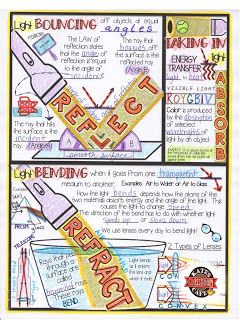 Light BOUNCING off objects at equal
angles
The LAW of
reflection states
that the angle of
reflection is equal
to the angle of
incidence
The ray that
bounces off
the surface is the
reflected ray
(Angle
The ray that hits
the surface is the
incident
ray
(Angle
REFLECT
smooth surface
TAKING IN
light
ENERGY
TRANSFER
light to heat
VISIBLE LIGHT
ROYGBIV
Color is produced
by the absorption
of selected
wavelengths
of light by an
object
ABSORB
Light BENDING when it goes from one transparent
medium to another. Examples: Air to Water or Air to Glass
How the light bends depends how the atoms of the
two materials absorb energy and the angle of the light. This
causes the light to change speed.
The direction of the bend has to do with whether light
speeds up or slows down.
We use lenses every day to bend light!
PRISM
TELESCOPE
REFRACT
Rays that pass
through a
surface are
called
These RAYS
BEND
Light bends
as it enters
the lens and
when it exits
2 Types of Lenses
CONVEX
SCIENCE